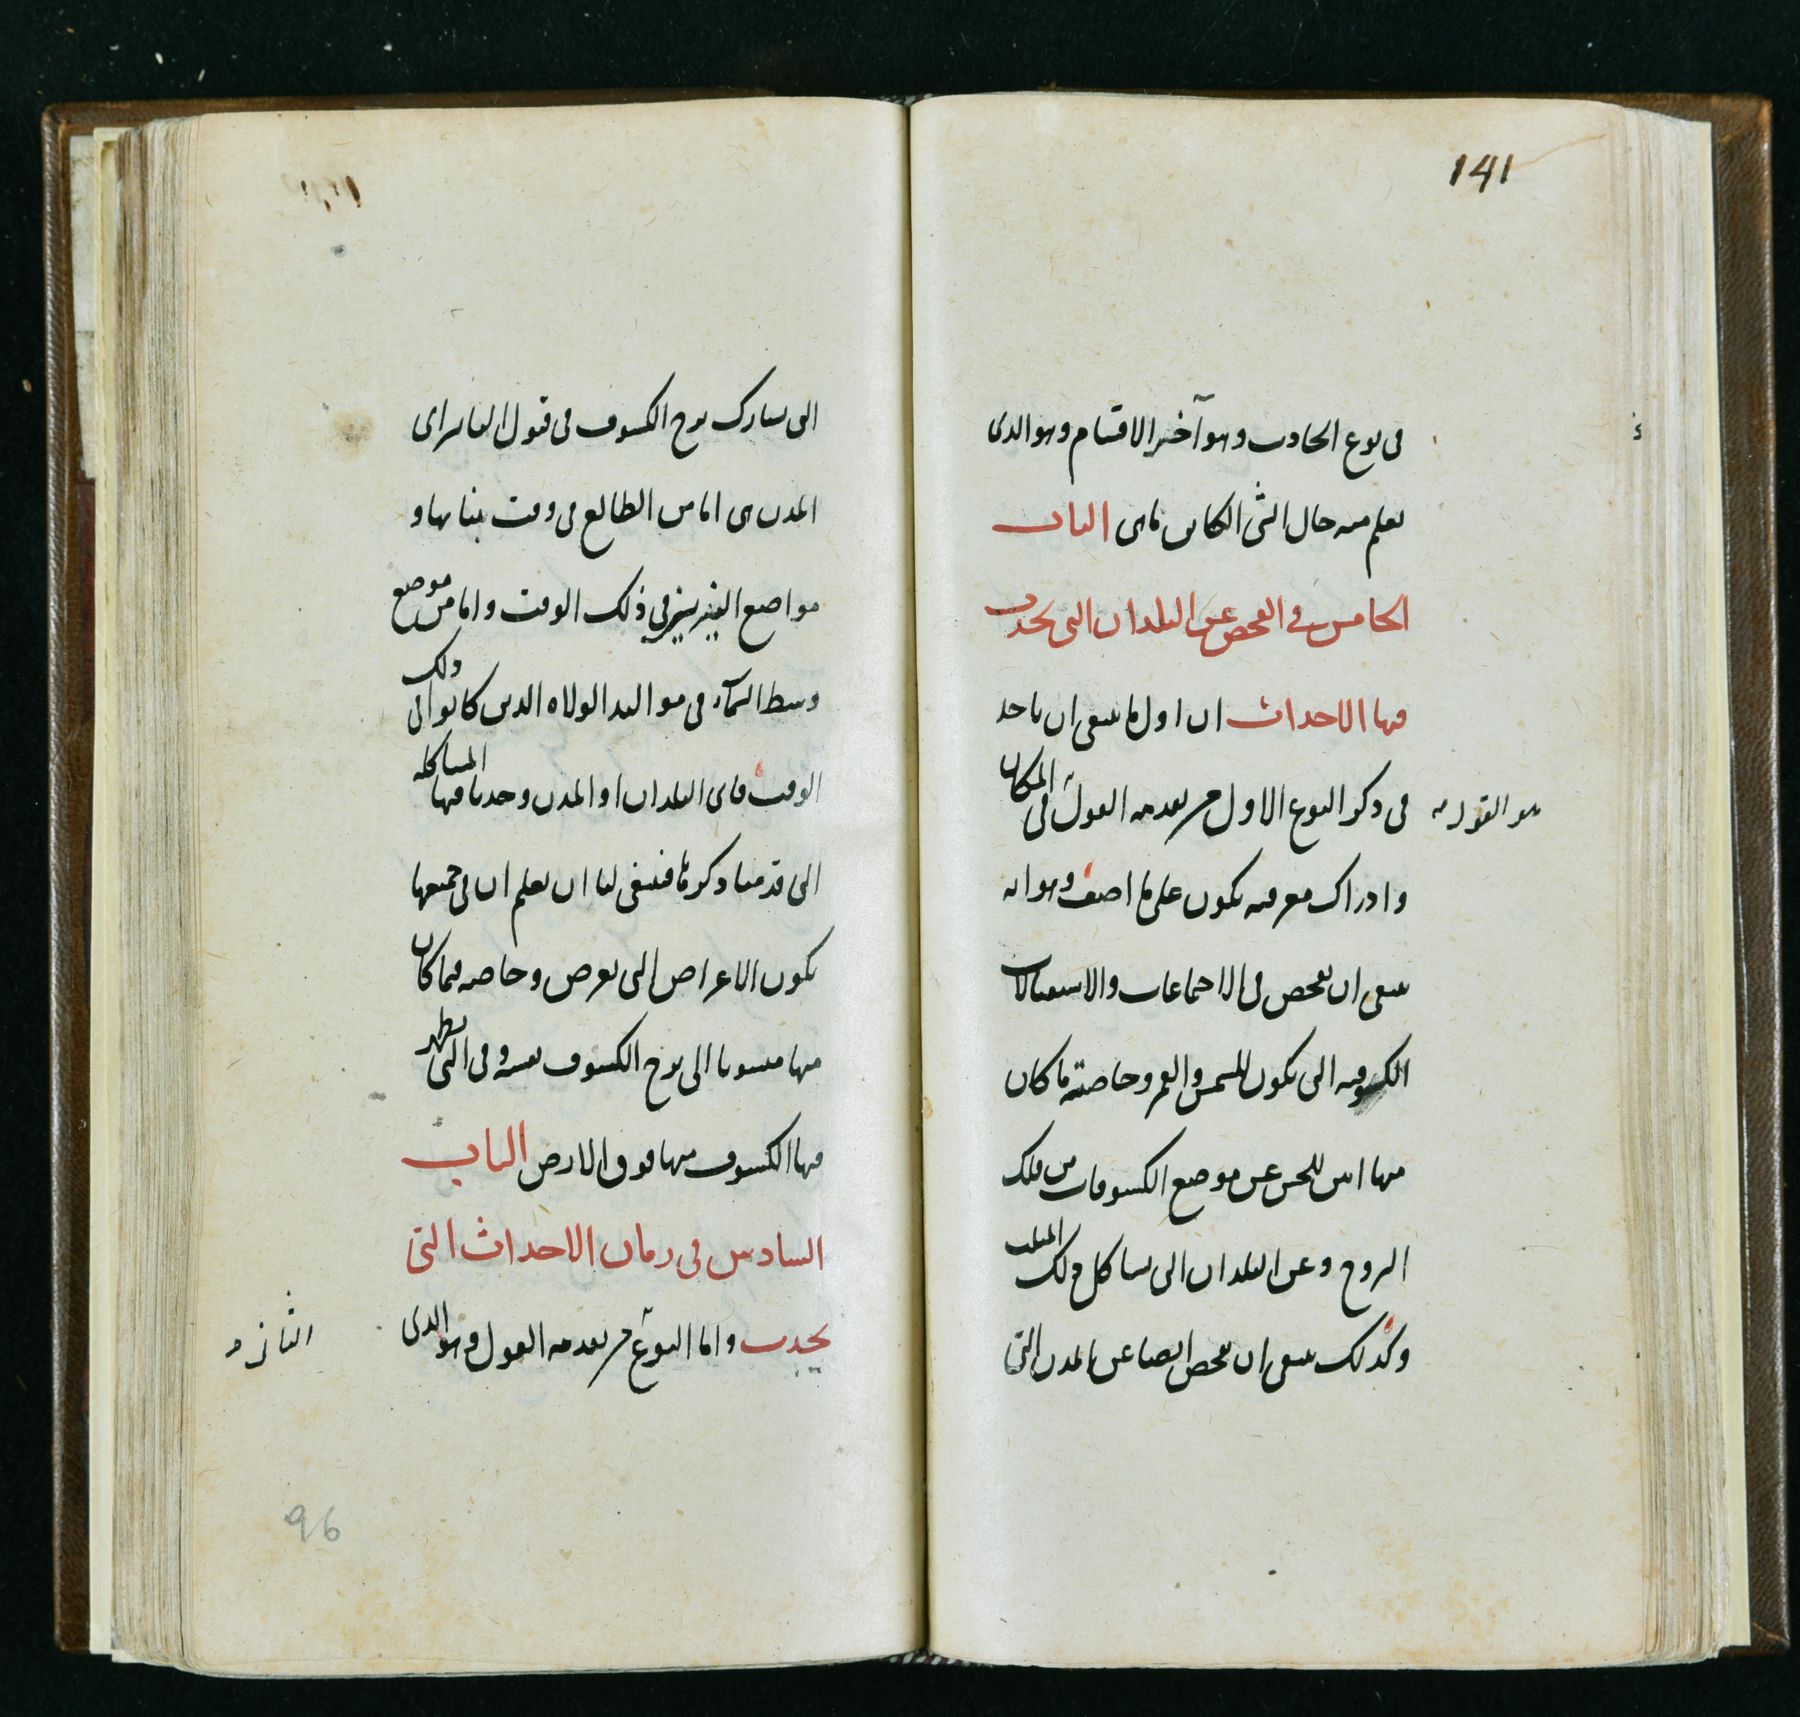 141
في نوع الحادث وهو آخر الاقسام وهو الذى
يعلم منه حال الشى الكاين ماهى الباب
الخامس في الفحص عن البلدان التى تحدث
فيها الاحداث ان اول ما ينبغى ان ناخذ
في ذكر النوع الاول من تقدمه القول في المكان
هو القول
وادراك معرفته يكون على ما اصف وهو انه
ينبغى ان نفحص في الاجتماعات والاستقبالات
الكسوفيه التى تكون للشمس والقمر وخاصته ما كان
منها ابين للحس عن موضع الكسوفات من فلك
البروج وعن البلدان التى تشاكل ذلك المثلث
وكذلك ينبغى ان نفحص ايضا عن المدن التى
التى تشارك برج الكسوف في قبول التاثير اى
المدن هى اما من الطالع في وقت بنائها و
مواضع النيرين في ذلك الوقت واما من موضع
وسط السماء في مواليد الولاه الذين كانوا في ذلك
الوقت فاى البلدان او المدن وجدنا فيها المشاكله
التى قدمنا ذكرها فينبغى لنا ان نعلم ان في جميعها
تكون الاعراض التى تعرض وخاصه فيما كان
منها منسوبا الى برج الكسوف نفسه وفي التى يظهر
فيها الكسوف منها فوق الارض الباب
السادس في زمان الاحداث التى
تحدث واما النوع من تقدمه القول وهو الذى
الثانى
96